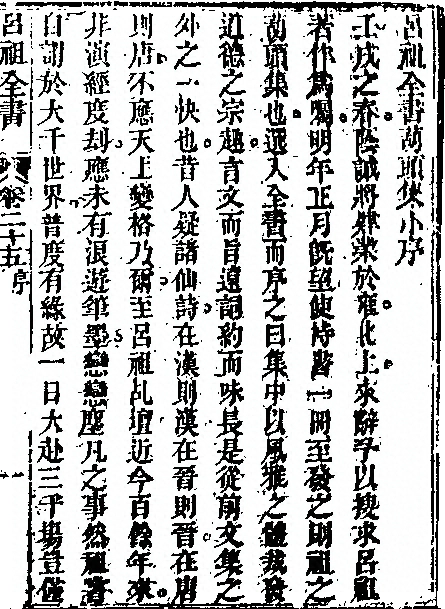 呂祖全書葫頭集小序
壬戌之春陰誠將肄業於雍北上來辭予以搜求呂祖
著作為囑明年正月既望使持書一冊至發之則祖之
葫頭集也選入全書而序之曰集中以風雅之體裁發
道德之宗趣言文而旨遠詞約而味長是從前文集之
外之一快也昔人疑諸仙詩在漢則漢在晉則晉在唐
則唐不應天上變格乃爾至呂祖乩壇近今百餘年來
非演經度劫應未有浪遊筆墨戀戀塵凡之事然祖嘗
自謂於大千世界普度有緣故一日大赴三千場豈僅
呂祖全書 卷二十五序 一